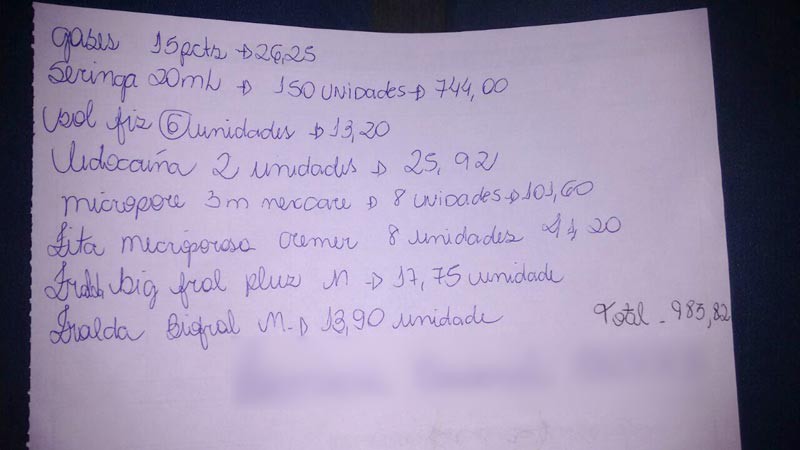 gases 15pcts → 26,25
Seringa 20mL → 150 UNIDADES → 744,00
sol fiz 6 unidades → 13,20
Lidocaína 2 unidades → 25,92
micropore 3m nexcare → 8 UNIDADES → 101,60
Fita microporosa cremer 8 unidades 41,20
Fralda big fral pluz M → 17,75 unidade
Fralda Bigfral M → 13,90 unidade
Total - 985,82